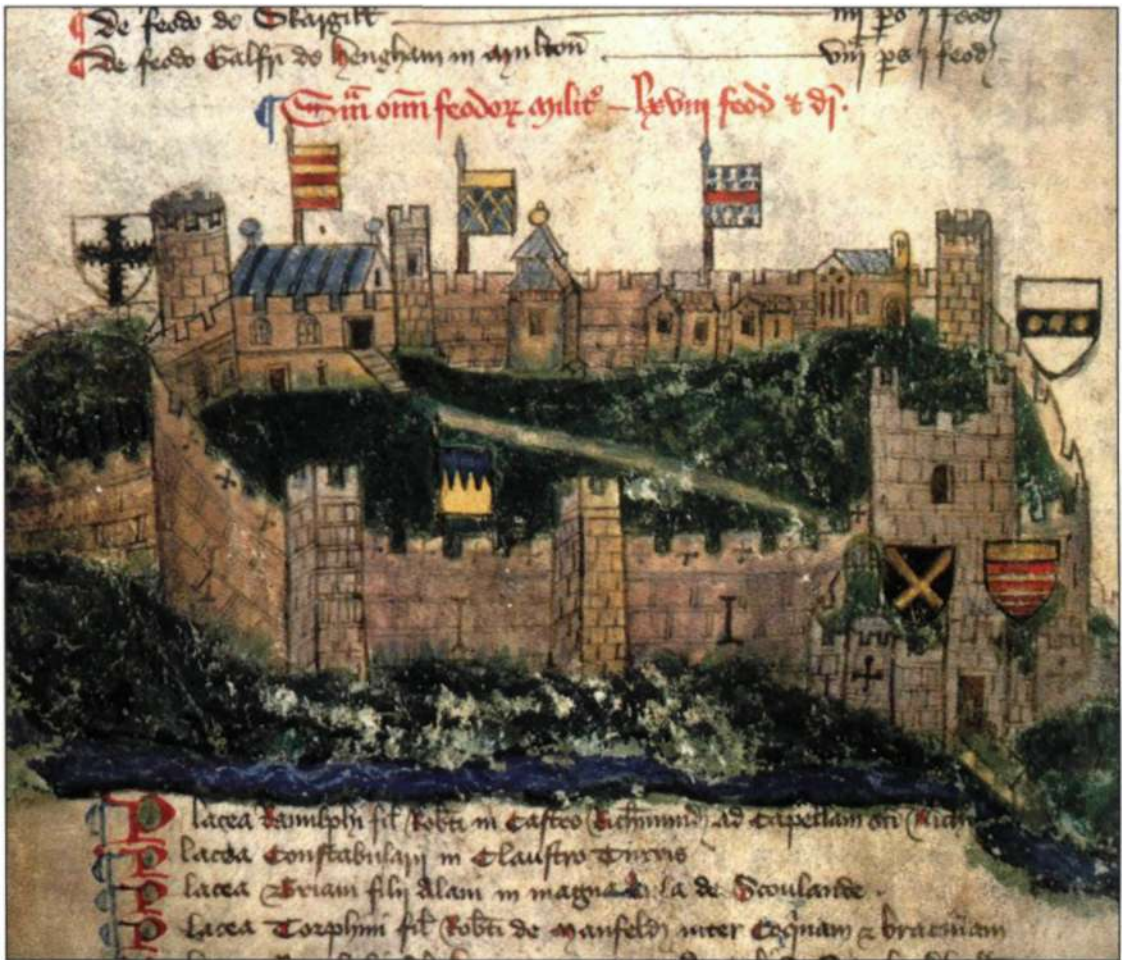 ¶ De feodo de Skargill iiij ps j feodj
¶ De feodo Galfri de Hengham in Multon viij ps j feodj.
¶ Sm om feodoꝝ milit – lxviij feod & dj.
Placea Ranulphi fil Robti in Castro Richmund ad Capellam sci Nich
Placea Constabularij in Claustro Turris
Placea Briani filij Alani in magna la de Scoulande.
Placea Torphini fil Robti de Manfeld inter Coqinam & bracinam